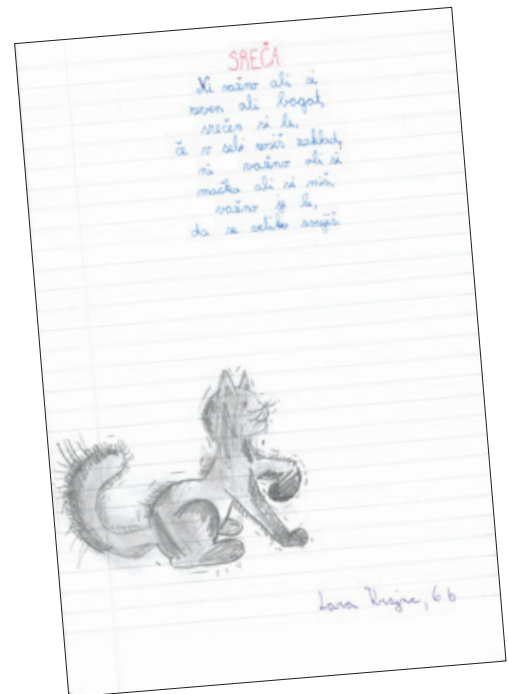 SREČA
Ni važno ali si
reven ali bogat,
srečen si le,
če v sebi nosiš zaklad,
ni važno ali si
mačka ali si miš,
važno je le,
da se veliko smejiš
Lara Krajnc, 6.b